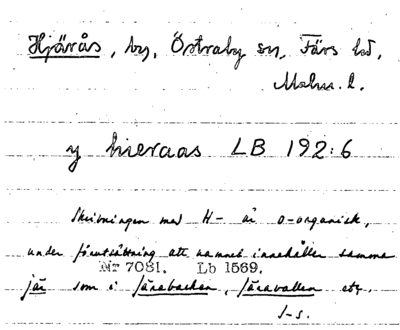 Hjärås, by, Östraby sn, Färs hd,
Malm. l.
y hieraas LB 192:6
Skrivningen med H- är o-organisk,
under förutsättning att namnet innehåller samma
Nr 7081. Lb 1569.
jär som i Järabacken, Järavallen etc.
J-s.